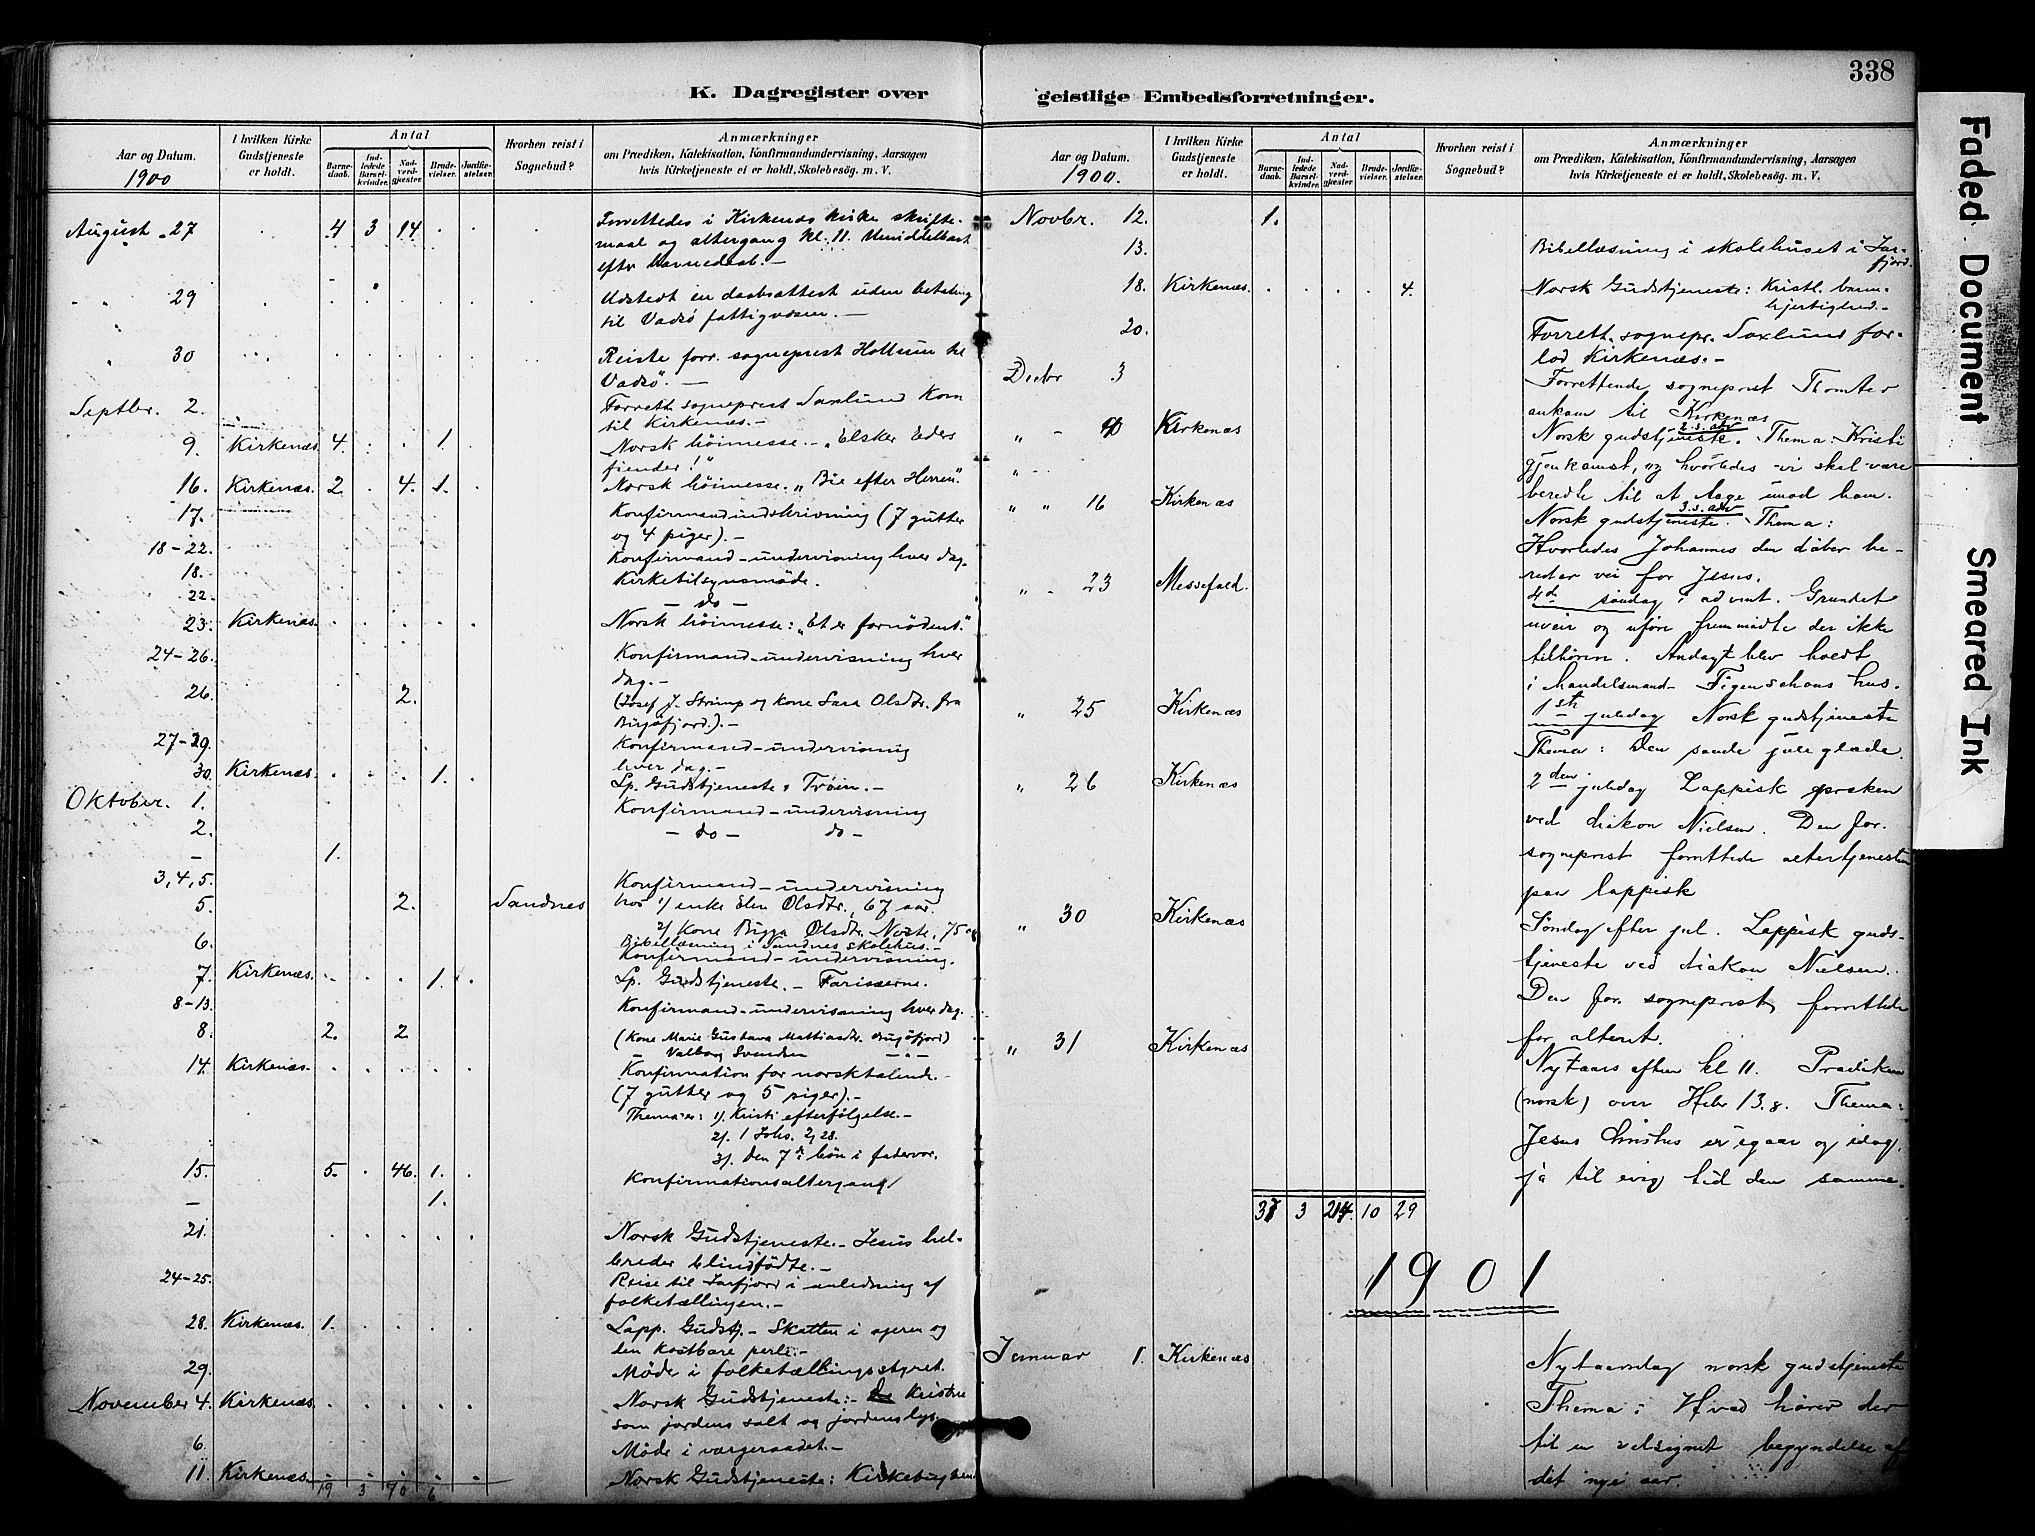 338
K. Dagregister over geistlige Embedsforretninger.
Aar og Datum.
1900
I hvilken Kirke Gudstjeneste er holdt.
Antal
Barnedaab.
Indledede Barselkvinder.
Nadverdgjester.
Brudevielser.
Jordfæstelser.
Hvorhen reist i Sognebud?
Anmærkninger
om Prædiken, Katekisation, Konfirmandundervisning, Aarsagen
hvis Kirketjeneste ei er holdt, Skolebesøg. m. V.
August 27 4 3 14 Forrettedes i Kirkenæs kirke skrifte-
maal og altergang kl. 11. Umiddelbart
efter barnedaab. –
" 29 Udstedt en daabsattest uden betaling
til Vadsö fattigvæsen. –
" 30 Reiste forr. sogneprest Hottum til
Vadsö. –
Septbr. 2. Forrett. sogneprest Saxlund kom
til Kirkenæs. –
9. Kirkenæs. 4. 1. Norsk höimesse. – "Elsker Eders
fiender!"
16. Kirkenæs. 2. 4. 1. Norsk höimesse. "Bie efter Herren".
17. Konfirmandindskrivning (7 gutter
og 4 piger). –
18-22. Konfirmand-undervisning hver dag.
18. Kirketilsynsmöde.
22. – do –
23. Kirkenæs. Norsk höimesse: "Et er fornödent."
24-26. Konfirmand-undervisning hver
dag. –
26. 2. (Josef J. Strimp og kone Sara Olsdtr. fra
Bugöfjord.). –
27-29. Konfirmand-undervisning
hver dag. –
30. Kirkenæs. 1. Lp. Gudstjeneste, Troen. –
Oktober. 1. Konfirmand-undervisning
2. – do – do –
– 1.
3, 4, 5. Konfirmand-undervisning
5. 2. Sandnes hos 1/ enke Elen Olsdtr., 67 aar.
2/ Kone Bigga Olsdtr. Noste, 75 aar
Bibellæsning i Sandnes skolehus. –
6. Konfirmand-undervisning.
7. Kirkenæs. 1. Lp. Gudstjeneste. – Farisæerne.
8-13. Konfirmand-undervisning hver dag.
8. 2. 2 (Kone Marie Gustava Mathiasdtr. Bugöfjord)
– Valborg Svendsen – " –
14. Kirkenæs. Konfirmation for norsktalende. –
(7 gutter og 5 piger). –
Themaer: 1/. Kristi efterfölgelse. –
2/. 1 Johs. 2, 28.
3/. den 7de bön i fadervor.
15. 5. 46. 1. Konfirmationsaltergang
– 1.
21. Norsk Gudstjeneste. – Jesus hel-
breder blindfödte. –
24-25. Reise til Jarfjord i anledning af
folketællingen. –
28. Kirkenæs. 1. Lapp. Gudstj. – Skatten i ageren og
den kostbare perle. –
29. Möde i folketællingsstyret.
November 4. Kirkenæs. Norsk Gudstjeneste: – De Kristne
som jordens salt og jordens lys.
6. Möde i værgeraadet. –
11. Kirkenæs. Norsk Gudstjeneste: Kirkebygben
19 3 70 6
Aar og Datum.
1900.
I hvilken Kirke Gudstjeneste er holdt.
Antal
Barnedaab.
Indledede Barselkvinder.
Nadverdgjester
Brudevielser.
Jordfæstelser.
Hvorhen reist i Sognebud?
Anmærkninger
om Prædiken, Katekisation, Konfirmandundervisning, Aarsagen
hvis Kirketjeneste ei er holdt, Skolebesøg. m. V.
Novbr. 12. 1.
13. Bibellæsning i skolehuset i Jar-
fjord.
18. Kirkenæs. 4. Norsk Gudstjeneste: Kristl. barm-
hjertighed. –
20. Forrett. sognepr. Saxlund for-
lod Kirkenæs. –
Decbr 3 Forrettende sogneprest Thomter
ankom til Kirkenæs
" – Kirkenæs 2. s. adv
Norsk gudstjeneste. Thema: Kristi
gjenkomst, og hvorledes vi skal være
beredte til at tage imod ham.
" " 16 Kirkenæs 3. s. adv
Norsk gudstjeneste. Thema:
Hvorledes Johannes den döber be-
reder vei for Jesus.
" – 23 Messefald. 4de söndag i advent. Grundet
uveir og uföre fremmödte der ikke
tilhörere. Andagt blev holdt
i Handelsmand Figenschous hus.
" 25 Kirkenæs 1ste juledag Norsk gudstjeneste
Thema: Den sande juleglæde.
" 26 Kirkenæs 2den juledag Lappisk præken
ved diakon Nielsen. Den for.
sogneprest forrettede altertjenesten
paa lappisk
" 30 Kirkenæs Söndag efter jul. Lappisk guds-
tjeneste ved diakon Nielsen.
Den for. sogneprest forrettede
for alteret.
" 31 Kirkenæs Nytaarsaften kl 11. Prædiken
(norsk) over Hebr 13.8. Thema:
Jesus Christus er igaar og idag,
ja til evig tid den samme.
3 10 29
1901
Januar 1. Kirkenæs Nytaarsdag norsk gudstjeneste
Thema: Hvad hörer der
til en velsignet begyndelse af
det nye aar.
Faded Document
Smeared Ink